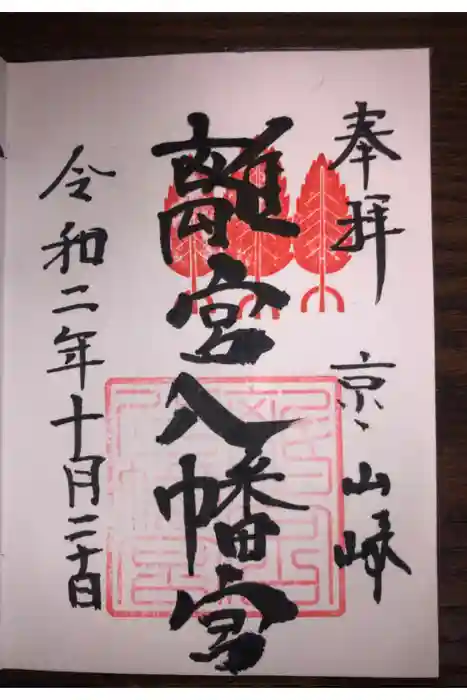 奉拝 京、山崎
離宮八幡宮
令和二年十月二十日